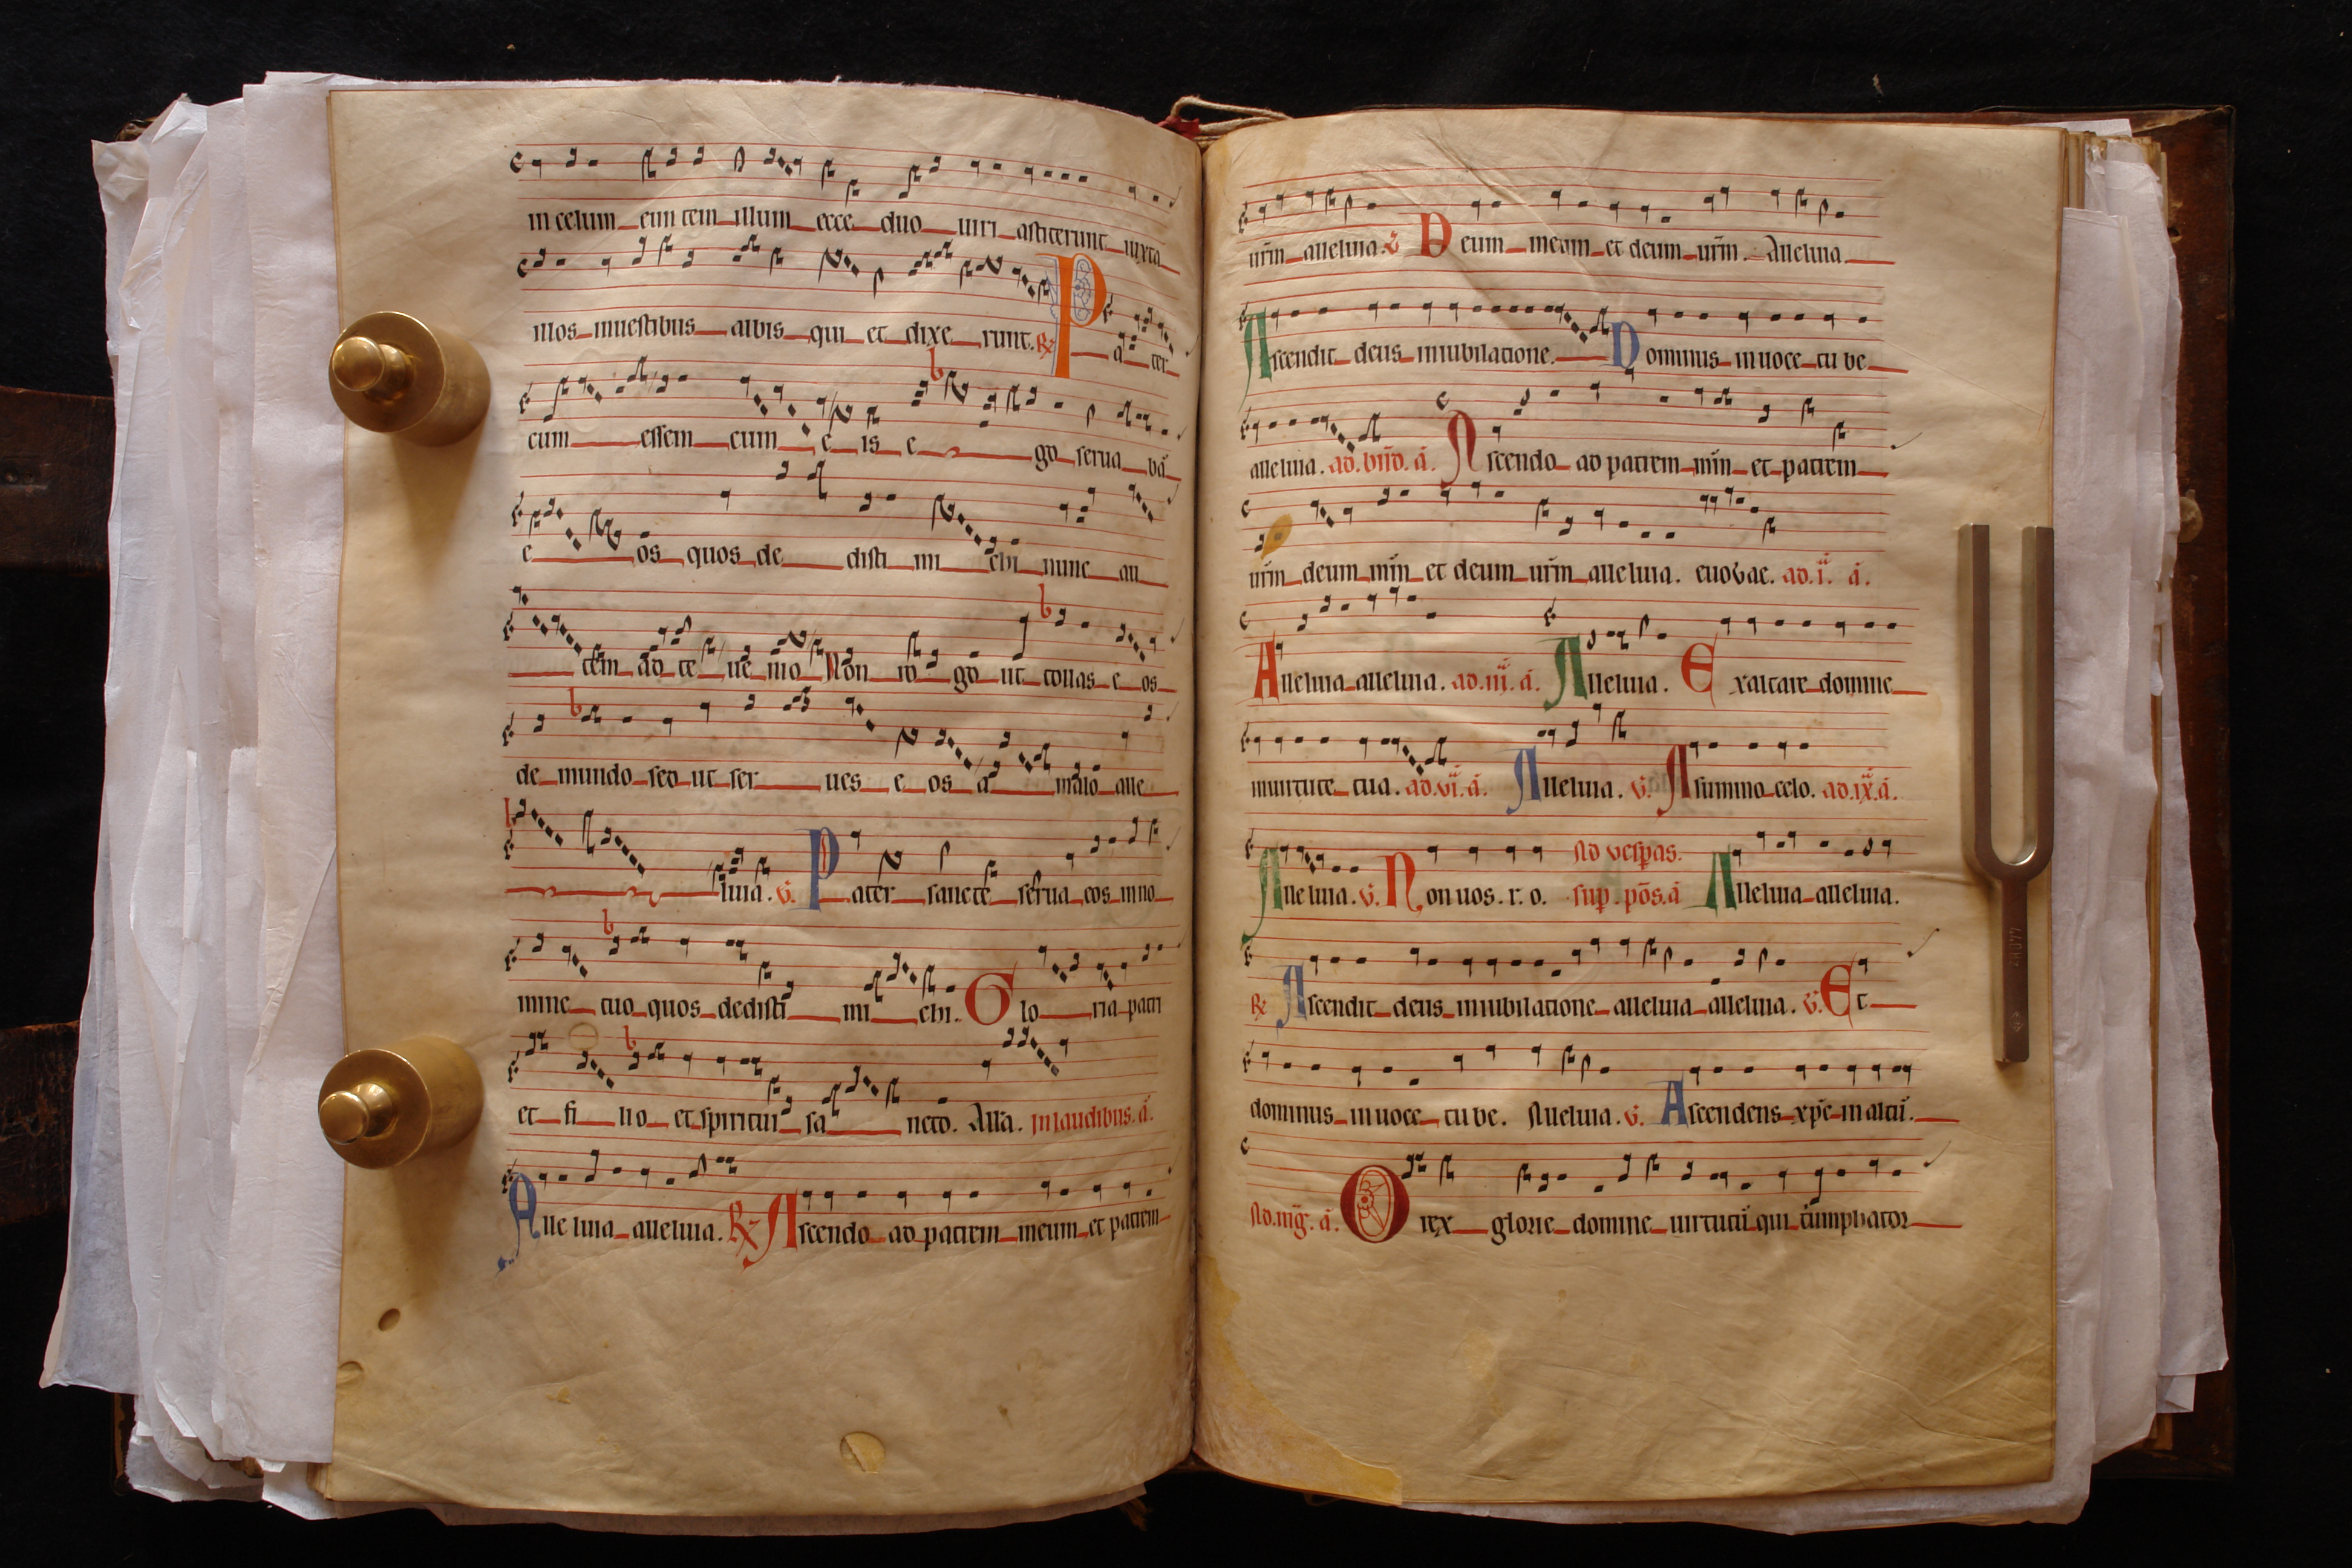 in celum eun tem illum ecce duo uiri astiterunt iuxta
illos inuestibus albis qui et dixe runt. R Pa ter
cum essem cum e is e go serua bā
e os quos de disti mi chi nunc au
tēm ad te ue nio Non ro go ut tollas e os
de mundo sed ut ser ues e os a malo alle
luia. V. Pater sancte serua eos in no
mine tuo quos dedisti mi chi. Glo ria patri
et fi lio et spiritui sa ncto. All'a. In laudibus. a.
Alle luia alleluia. R Ascendo ad patrem meum et patrem
ur̄m alleluia. V Deum meum et deum ur̄m. Alleluia
Ascendit deus in iubilatione. Dominus in uoce tu be
alleluia. ad. bn̄d. a. Ascendo ad patrem mm̄ et patrem
ur̄m deum mm̄ et deum ur̄m alleluia. euouae. ad. i. a.
Alleluia alleluia. ad. iij. a. Alleluia. Exaltare domine
inuirtute tua. ad. vi. a. Alleluia. V. Asummo celo. ad. ix. a.
Ad vesp̄as.
Alleluia. V. Non uos. r. o. sup. pōs. a Alleluia alleluia.
R Ascendit deus in iubilatione alleluia alleluia. V. Et
dominus in uoce tu be. Alleluia. V. Ascendens xp̄e in altū.
Ad. mḡ. a. O rex glorie domine uirtutū qui tiumphator